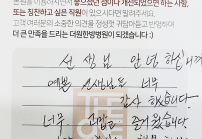 좋았던 점이나 개선되었으면 하는 사항,
또는 칭찬하고 싶은 직원이 있으시다면 말씀해주세요.
고객 여러분의 소중한 의견을 정성껏 귀담아듣고 반영하여
더 큰 만족을 드리는 더원한방병원이 되겠습니다 :)
선생님 안녕하십니까
예쁜 너무
감사 했습니다
너무 고맙고 즐거웠습니다